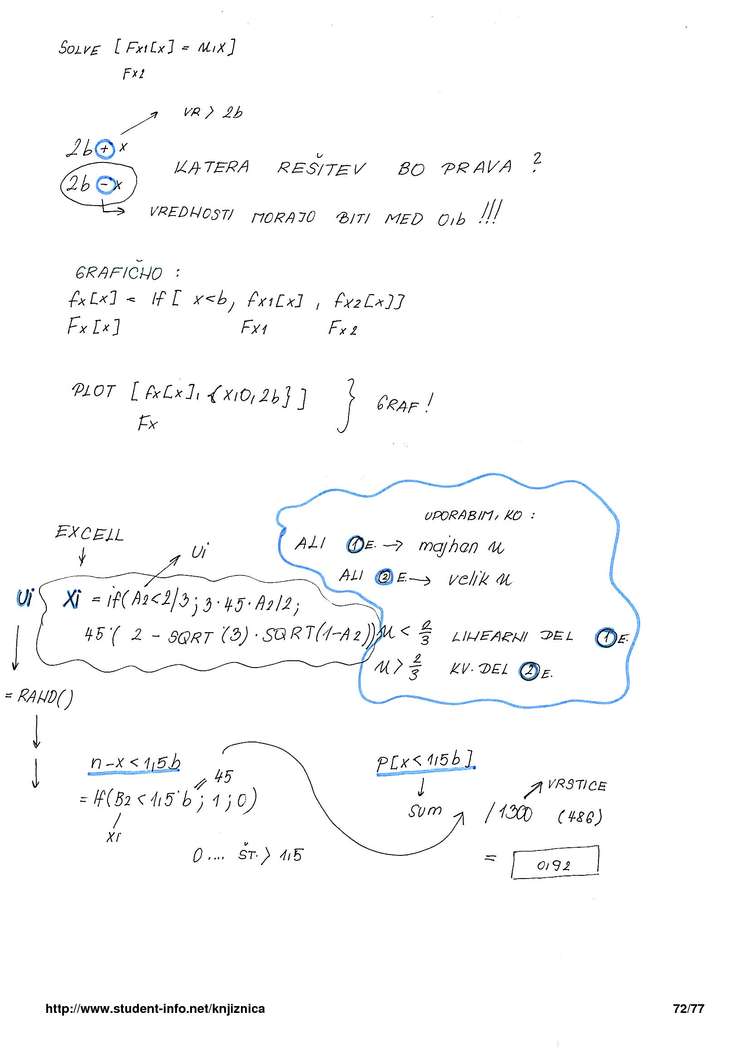 SOLVE [ Fx1[x] = u,x]
Fx2
VR > 2b
2b + x
2b - x
KATERA REŠITEV BO PRAVA ?
VREDNOSTI MORAJO BITI MED 0,b !!!
GRAFIČNO :
fx[x] = If [ x<b, fx1[x] , fx2[x]]
Fx[x] Fx1 Fx2
PLOT [fx[x], {x,0,2b}] } GRAF!
Fx
UPORABIM, KO :
EXCELL
ALI 1 E. → majhan u
Ui
ALI 2 E → velik u
Ui Xi = if(A2<2/3 ; 3·45·A2/2;
45·( 2 - SQRT (3) · SQRT(1-A2)) u < 2/3 LINEARNI DEL 1 E.
u > 2/3 KV. DEL 2 E.
= RAND()
n-x < 1,5b
P[x<1,5b]
45
= If(B2 < 1,5·b ; 1 ; 0)
xi
SUM /1300 VRSTICE (486)
0 .... ŠT. > 1,5
= 0,92
http://www.student-info.net/knjiznica 72/77